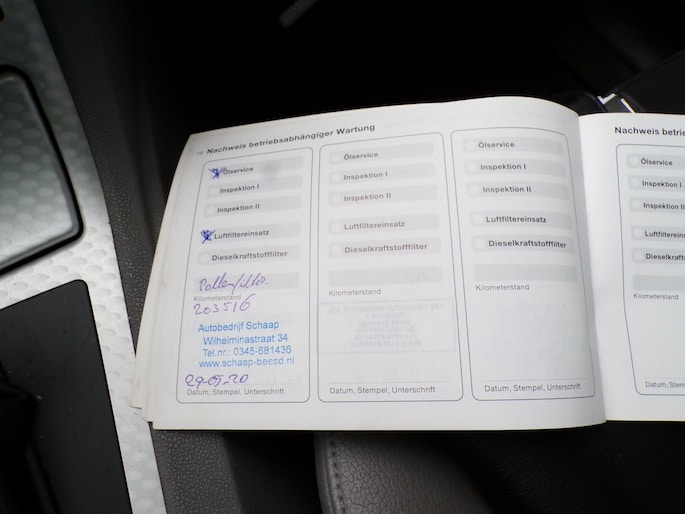 Nachweis betriebsabhängiger Wartung
Ölservice
Inspektion I
Inspektion II
Luftfiltereinsatz
Dieselkraftstofffilter
Pollenfilter
Kilometerstand
203516
Autobedrijf Schaap
Wilhelminastraat 34
Tel.nr.: 0345-681436
www.schaap-beesd.nl
Datum, Stempel, Unterschrift
Ölservice
Inspektion I
Inspektion II
Luftfiltereinsatz
Dieselkraftstofffilter
Kilometerstand
Datum, Stempel, Unterschrift
Ölservice
Inspektion I
Inspektion II
Luftfiltereinsatz
Dieselkraftstofffilter
Kilometerstand
Datum, Stempel, Unterschrift
Nachweis betrie
Ölservice
Inspektion I
Inspektion II
Luftfilterein
Dieselkraf
Kilometerstand
Datum, Stem